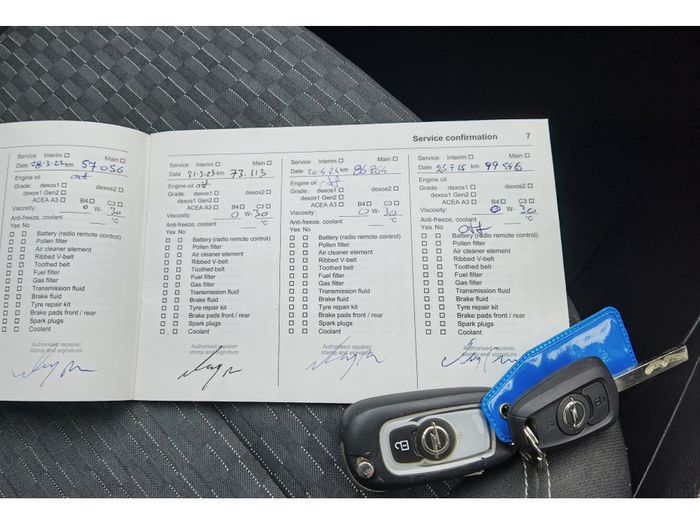 Service confirmation 7
Service: Interim ☐ Main ☐
Date 28-3-22 km 57056
Engine oil
Grade: dexos1 ☐ dexos2 ☐
dexos1 Gen2 ☐
ACEA A3 ☐ B4 ☐ C3 ☐
Viscosity: 0 W- 30
Anti-freeze, coolant °C
Yes No
☐ ☐ Battery (radio remote control)
☐ ☐ Pollen filter
☐ ☐ Air cleaner element
☐ ☐ Ribbed V-belt
☐ ☐ Toothed belt
☐ ☐ Fuel filter
☐ ☐ Gas filter
☐ ☐ Transmission fluid
☐ ☐ Brake fluid
☐ ☐ Tyre repair kit
☐ ☐ Brake pads front / rear
☐ ☐ Spark plugs
☐ ☐ Coolant
Authorised repairer
stamp and signature
Service: Interim ☐ Main ☐
Date 31-3-23 km 73.113
Engine oil
Grade: dexos1 ☐ dexos2 ☐
dexos1 Gen2 ☐
ACEA A3 ☐ B4 ☐ C3 ☐
Viscosity: 0 W- 30
Anti-freeze, coolant °C
Yes No
☐ ☐ Battery (radio remote control)
☐ ☐ Pollen filter
☐ ☐ Air cleaner element
☐ ☐ Ribbed V-belt
☐ ☐ Toothed belt
☐ ☐ Fuel filter
☐ ☐ Gas filter
☐ ☐ Transmission fluid
☐ ☐ Brake fluid
☐ ☐ Tyre repair kit
☐ ☐ Brake pads front / rear
☐ ☐ Spark plugs
☐ ☐ Coolant
Authorised repairer
stamp and signature
Service: Interim ☐ Main ☐
Date 20-4-24 km 86804
Engine oil
Grade: dexos1 ☐ dexos2 ☐
dexos1 Gen2 ☐
ACEA A3 ☐ B4 ☐ C3 ☐
Viscosity: 0 W- 30
Anti-freeze, coolant °C
Yes No
☐ ☐ Battery (radio remote control)
☐ ☐ Pollen filter
☐ ☐ Air cleaner element
☐ ☐ Ribbed V-belt
☐ ☐ Toothed belt
☐ ☐ Fuel filter
☐ ☐ Gas filter
☐ ☐ Transmission fluid
☐ ☐ Brake fluid
☐ ☐ Tyre repair kit
☐ ☐ Brake pads front / rear
☐ ☐ Spark plugs
☐ ☐ Coolant
Authorised repairer
stamp and signature
Service: Interim ☐ Main ☐
Date 25.7.25 km 99546
Engine oil
Grade: dexos1 ☐ dexos2 ☐
dexos1 Gen2 ☐
ACEA A3 ☐ B4 ☐ C3 ☐
Viscosity: 0 W- 30
Anti-freeze, coolant °C
Yes No
☐ ☐ Battery (radio remote control)
☐ ☐ Pollen filter
☐ ☐ Air cleaner element
☐ ☐ Ribbed V-belt
☐ ☐ Toothed belt
☐ ☐ Fuel filter
☐ ☐ Gas filter
☐ ☐ Transmission fluid
☐ ☐ Brake fluid
☐ ☐ Tyre repair kit
☐ ☐ Brake pads front / rear
☐ ☐ Spark plugs
☐ ☐ Coolant
Authorised repairer
stamp and signature